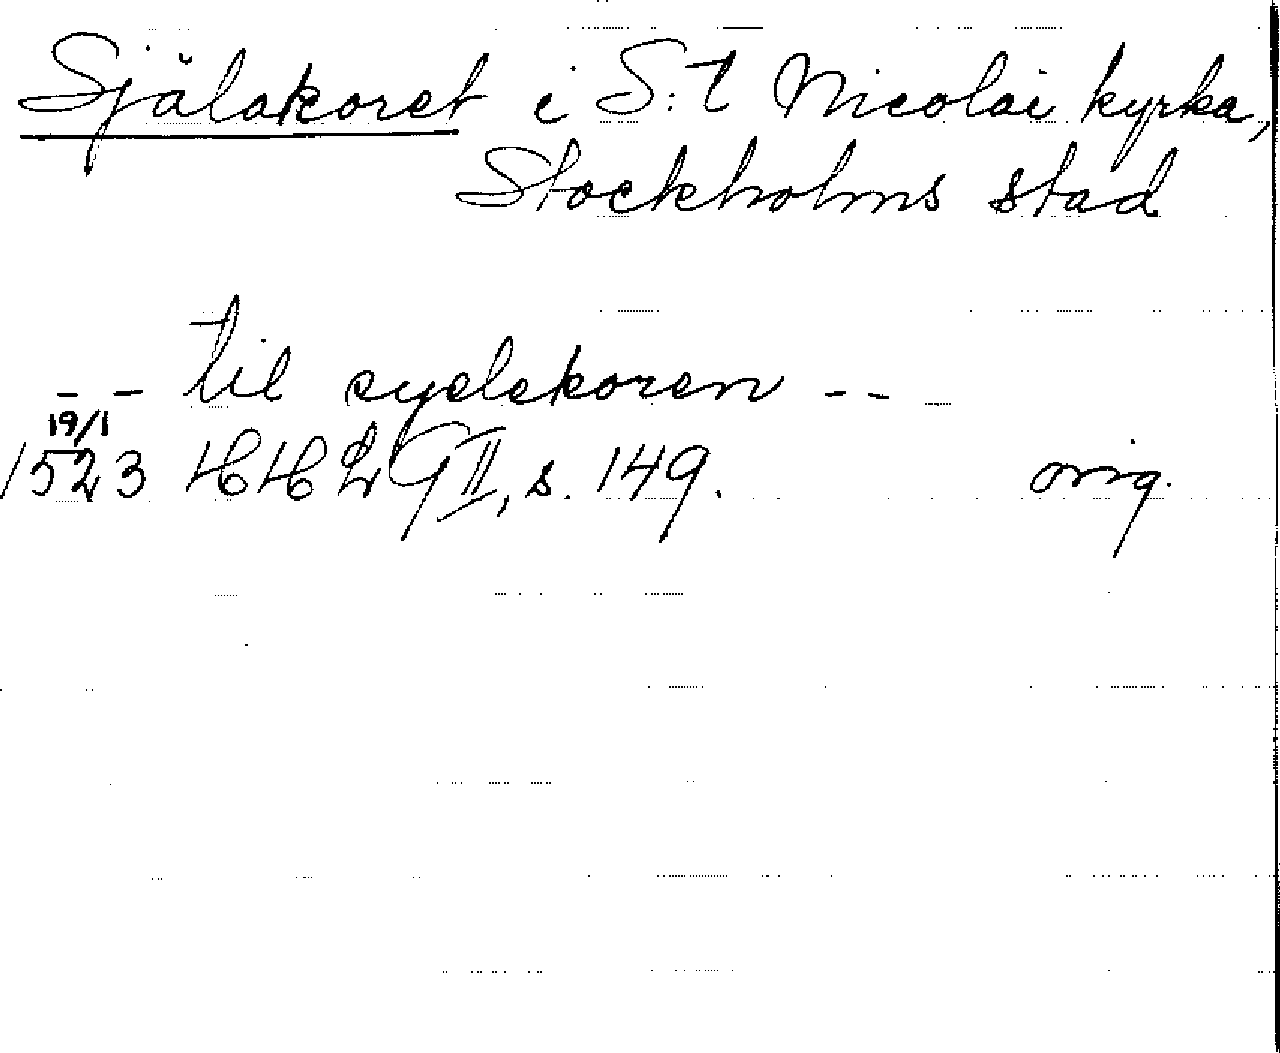 Själakoret i S:t Nicolai kyrka,
Stockholms stad
-- til syelekoren --
19/1
1523 HH 29 II, s. 149. orig.